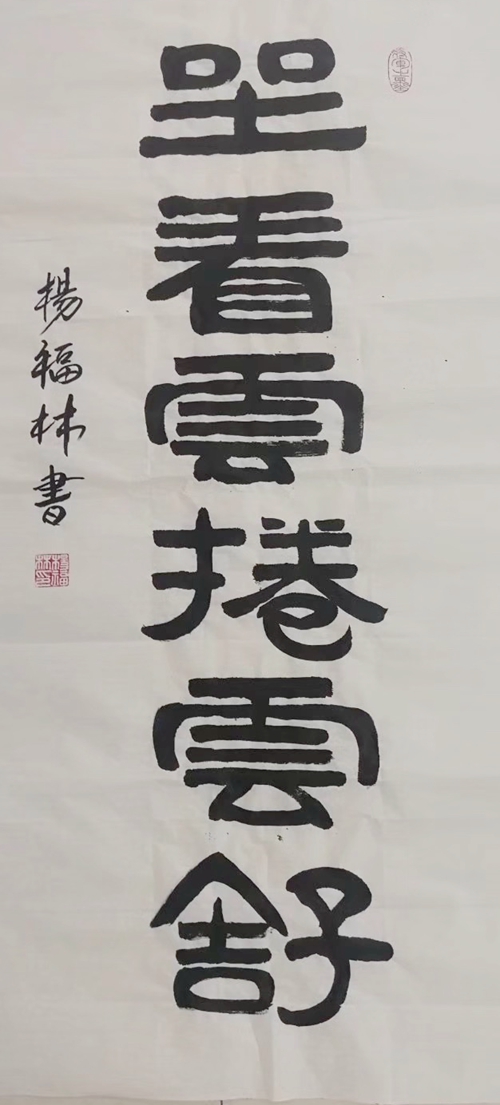 坐看雲捲雲舒
楊福林書